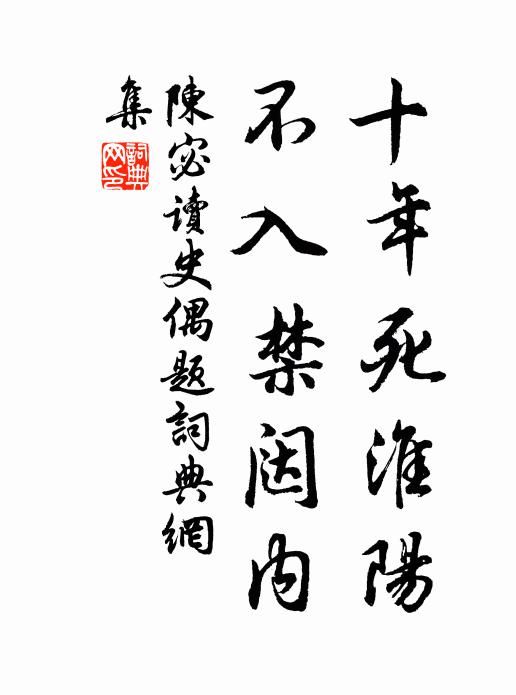 十年死淮陽
不入禁闼内
陳宓讀史偶题詞典網
集
詞典網